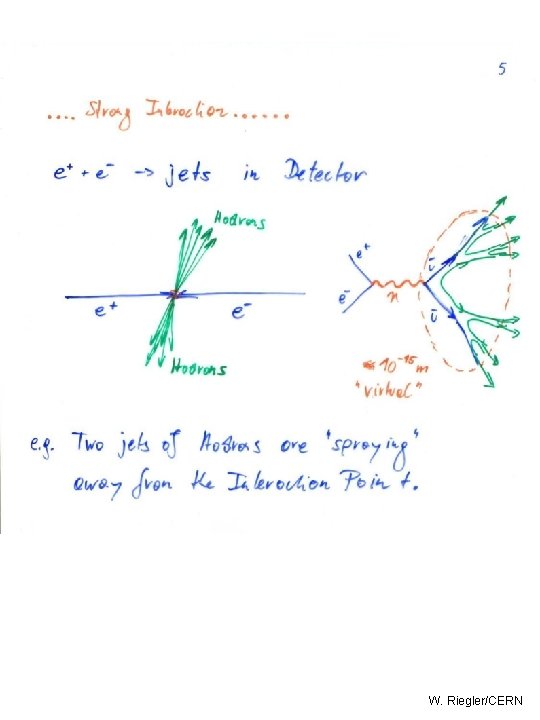 5
.... Strong Interaction......
e⁺ + e⁻ -> jets in Detector
Hadrons
e⁺ e⁻
Hadrons
e⁺
e⁻
ū
ū
10⁻¹⁵ m
"virtual"
e.g. Two jets of Hadrons are "spraying"
away from the Interaction Point.
W. Riegler/CERN